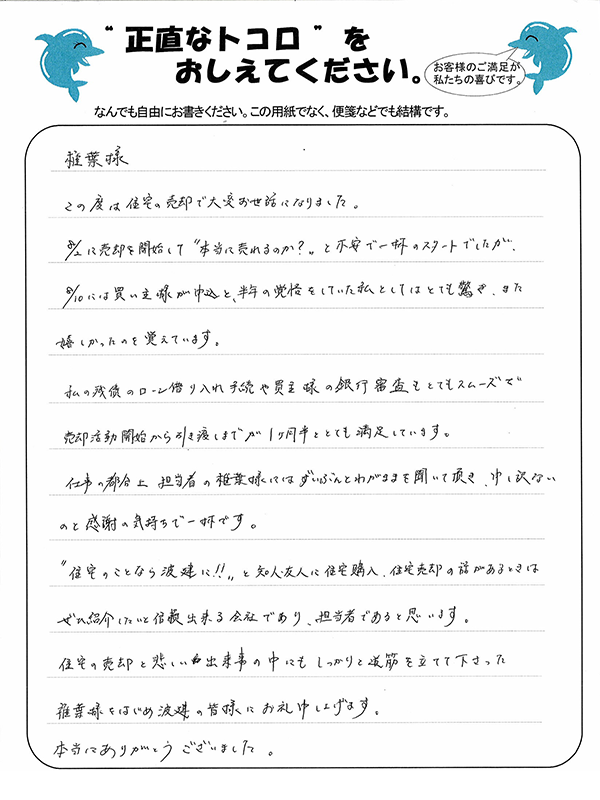 “正直なトコロ”を
おしえてください。
お客様のご満足が
私たちの喜びです。
なんでも自由にお書きください。この用紙でなく、便箋などでも結構です。
椎葉様
この度は住宅の売却で大変お世話になりました。
8/2に売却を開始して“本当に売れるのか？„と不安で一杯のスタートでしたが、
8/10には買い主様が申込と、半年の覚悟をしていた私としてはとても驚き、また
嬉しかったのを覚えています。
私の残債のローン借り入れ手続や買主様の銀行審査もとてもスムーズで
売却活動開始から引き渡しまでが1ヶ月半ととても満足しています。
仕事の都合上 担当者の椎葉様にはずいぶんとわがままを聞いて頂き、申し訳ない
のと感謝の気持ちで一杯です。
“住宅のことなら波建に!!„と知人・友人に住宅購入、住宅売却の話があるときは
ぜひ紹介したいと信頼出来る会社であり、担当者であると思います。
住宅の売却と悲しい出来事の中にもしっかりと道筋を立てて下さった
椎葉様をはじめ波建の皆様にお礼申し上げます。
本当にありがとうございました。